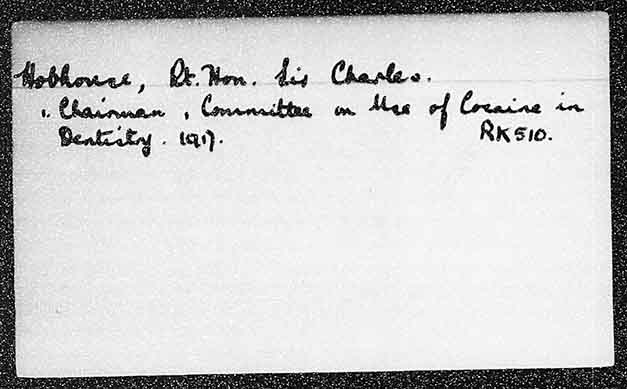 Hobhouse, Rt. Hon. Sir Charles.
1. Chairman, Committee on Use of Cocaine in
Dentistry. 1917. RK510.